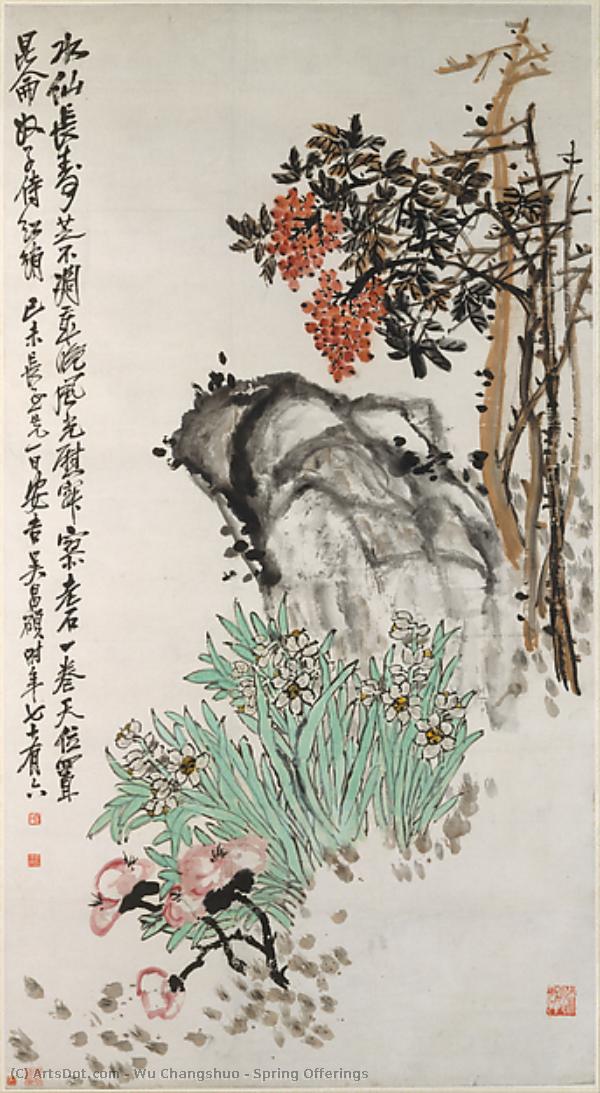 水仙長壽芝不凋垂垂風光慰寂寥老石一卷天位置
昆侖奴子侍紅綃 己未長至先一日安吉吳昌碩時年七十有六
(C) ArtsDot.com - Wu Changshuo - Spring Offerings